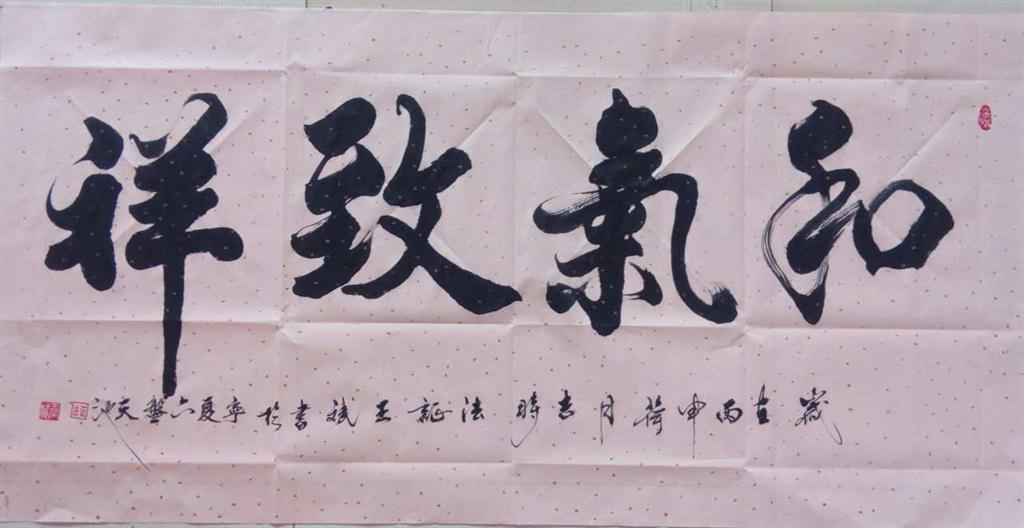 和氣致祥
歲在丙申荷月吉時法証王斌書於寧夏六盤天池